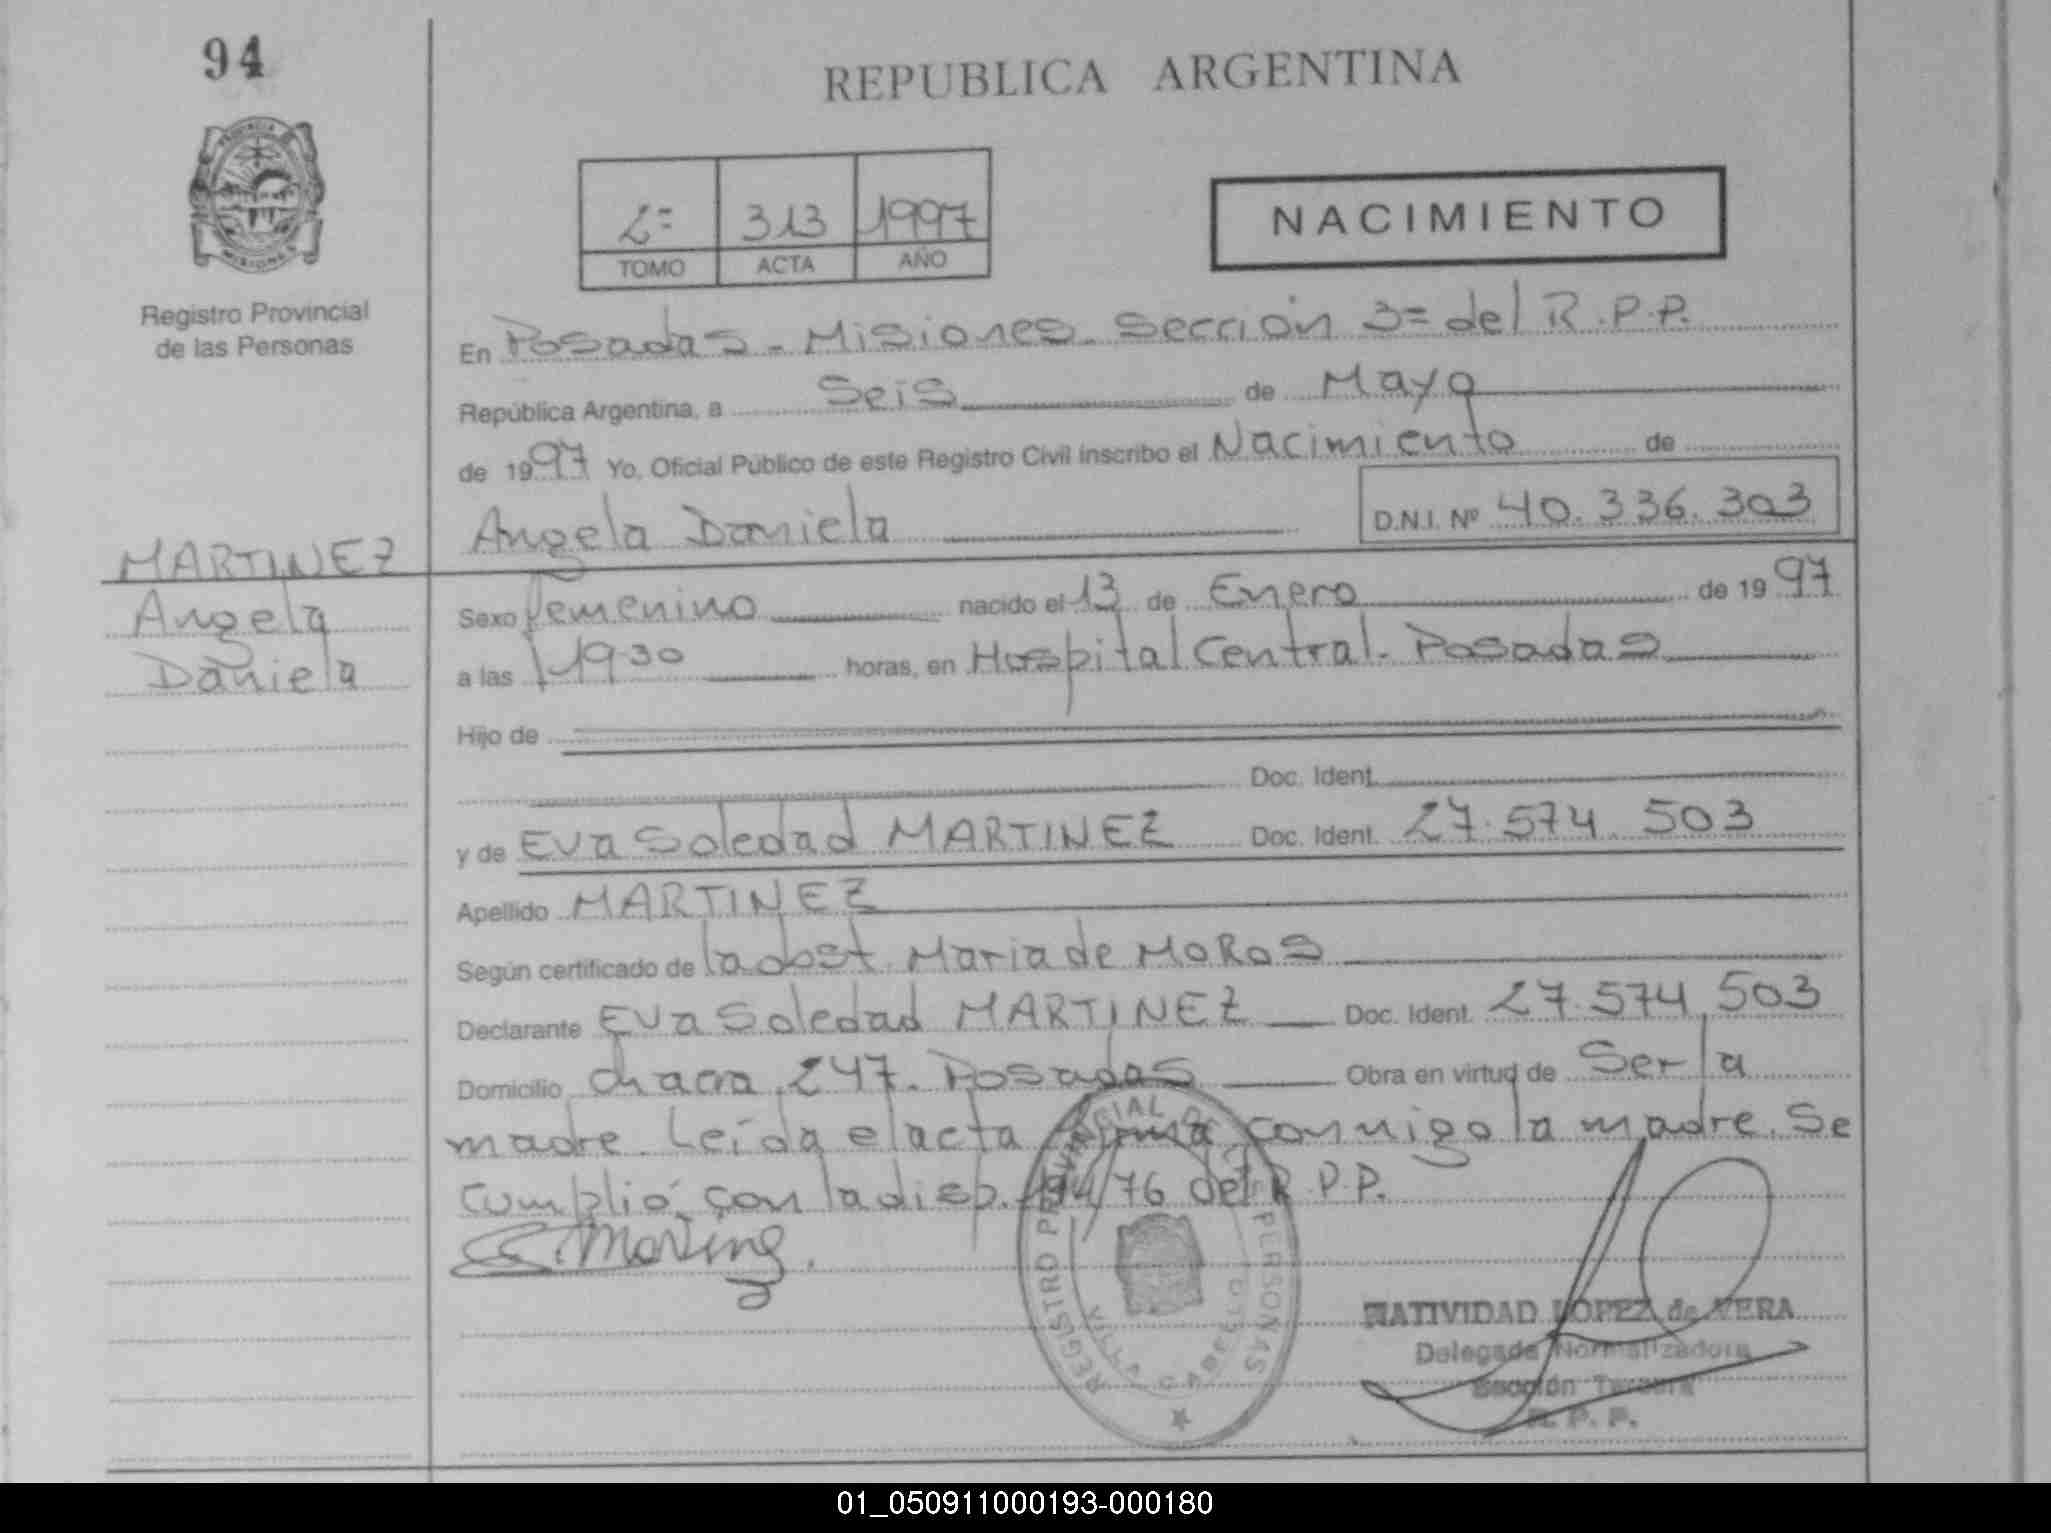 94
REPUBLICA ARGENTINA
PROVINCIA
MISIONES
2= 313 1997
TOMO ACTA AÑO
NACIMIENTO
Registro Provincial
de las Personas
En Posadas - Misiones - Sección 3= del R.P.P.
República Argentina, a Seis de Mayo
de 1997 Yo, Oficial Público de este Registro Civil inscribo el Nacimiento de
Angela Daniela D.N.I. Nº 40.336.303
MARTINEZ
Angela
Daniela
Sexo femenino nacido el 13 de Enero de 1997
a las 1930 horas, en Hospital Central - Posadas
Hijo de
Doc. Ident.
y de Eva Soledad MARTINEZ Doc. Ident. 27.574.503
Apellido MARTINEZ
Según certificado de la obst. Maria de MOROS
Declarante Eva Soledad MARTINEZ Doc. Ident. 27.574.503
Domicilio chacra 247. Posadas Obra en virtud de Ser la
madre. Leída el acta firma conmigo la madre. Se
cumplió con la disp. 194/76 del R.P.P.
E. Martinez.
REGISTRO PROVINCIAL DE LAS PERSONAS
NATIVIDAD LOPEZ de VERA
Delegada Normalizadora
Sección Tercera
R. P. P.
01_050911000193-000180